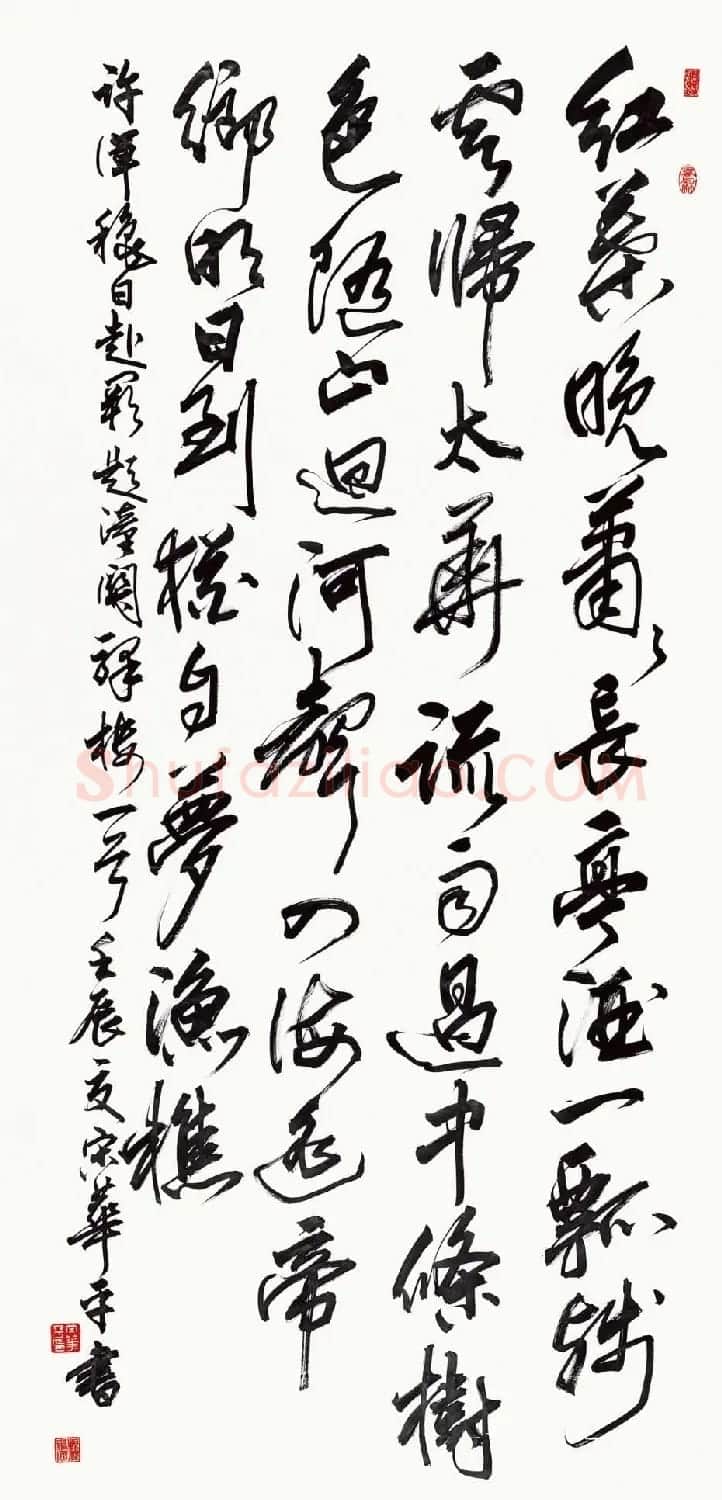 紅葉晚蕭〻長亭酒一瓢殘
雲歸太華疏雨過中條樹
色隨山迴河聲入海遙帝
鄉明日到猶自夢漁樵
許渾穐日赴闕題潼關驛樓一首 壬辰夏宋華平書
Shufaziliao.COM